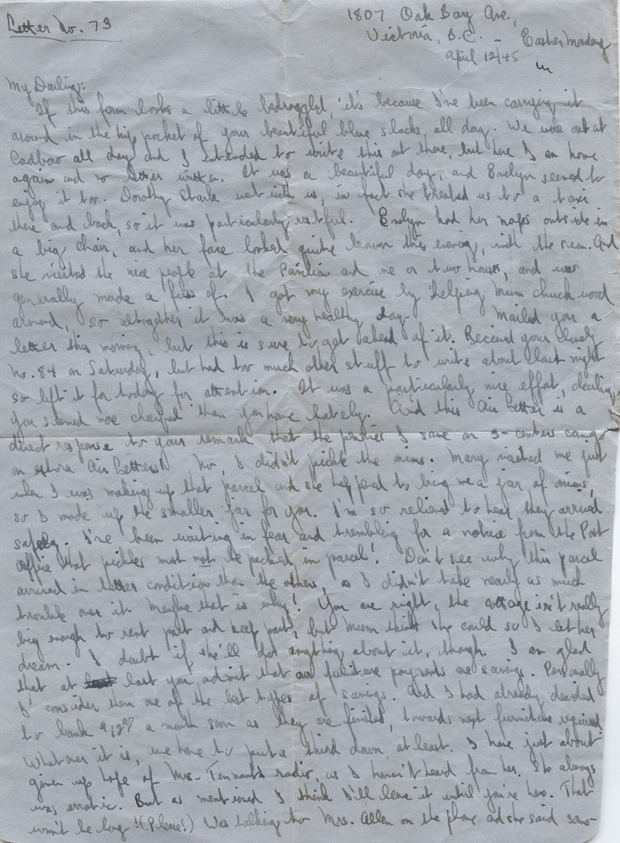 Letter No. 73
1807 Oak Bay Ave.,
Victoria, B.C. - Easter Monday
April 12/45
My Darling:
If this form looks a little bedraggled, it's because I've been carrying it
around in the hip pocket of your beautiful blue slacks all day. We were out at
Cadboro all day and I intended to write this out there, but here I am home
again and no letter written. It was a beautiful day, and Evelyn seemed to
enjoy it too. Dorothy went with us, in fact she treated us to a taxi
there and back, so it was particularly restful. Evelyn had her naps outside in
a big chair, and her face looked quite brown this evening, with the sun. And
she visited the nice people at the Pavilion and one or two houses, and was
generally made a fuss of. I got my exercise by helping Mum chuck wood
around, so altogether it was a very healthy day. Mailed you a
letter this morning, but this is sure to get ahead of it. Received your lovely
No. 84 on Saturday, but had too much other stuff to write about last night
so left it for today for attention. It was a particularly nice effort, darling,
you seemed more cheerful than you have lately. And this Air Letter is a
direct response to your remark that the pennies I save on 3-centers can go
on extra Air Letters! No, I didn't pickle the onions. Mary visited me just
when I was making up that parcel and she happened to bring me a jar of onions,
so I made up the smaller jar for you. I'm so relieved to hear they arrived
safely. I've been waiting in fear and trembling for a notice from the Post
Office that pickles must not be packed in parcels! Don't see why this parcel
arrived in better condition than the others, as I didn't take nearly as much
trouble over it. Maybe that is why! You are right, the cottage isn't really
big enough to rent part and keep part, but Mum thinks she could so I let her
dream. I doubt if she'll do anything about it, though. I am glad
that at last you admit that our furniture payments are savings. Personally
I consider them one of the best types of savings. And I had already decided
to bank a month soon as they are finished, towards next furniture required.
Whatever it is, we have to put a third down, at least. I have just about
given up hope of Mrs. Tennant's radio, as I haven't heard from her. She always
was erratic. But as mentioned I think I'll leave it until you're here. That
won't be long! (Please!) Was talking to Mrs. Allen on the phone and she said some-